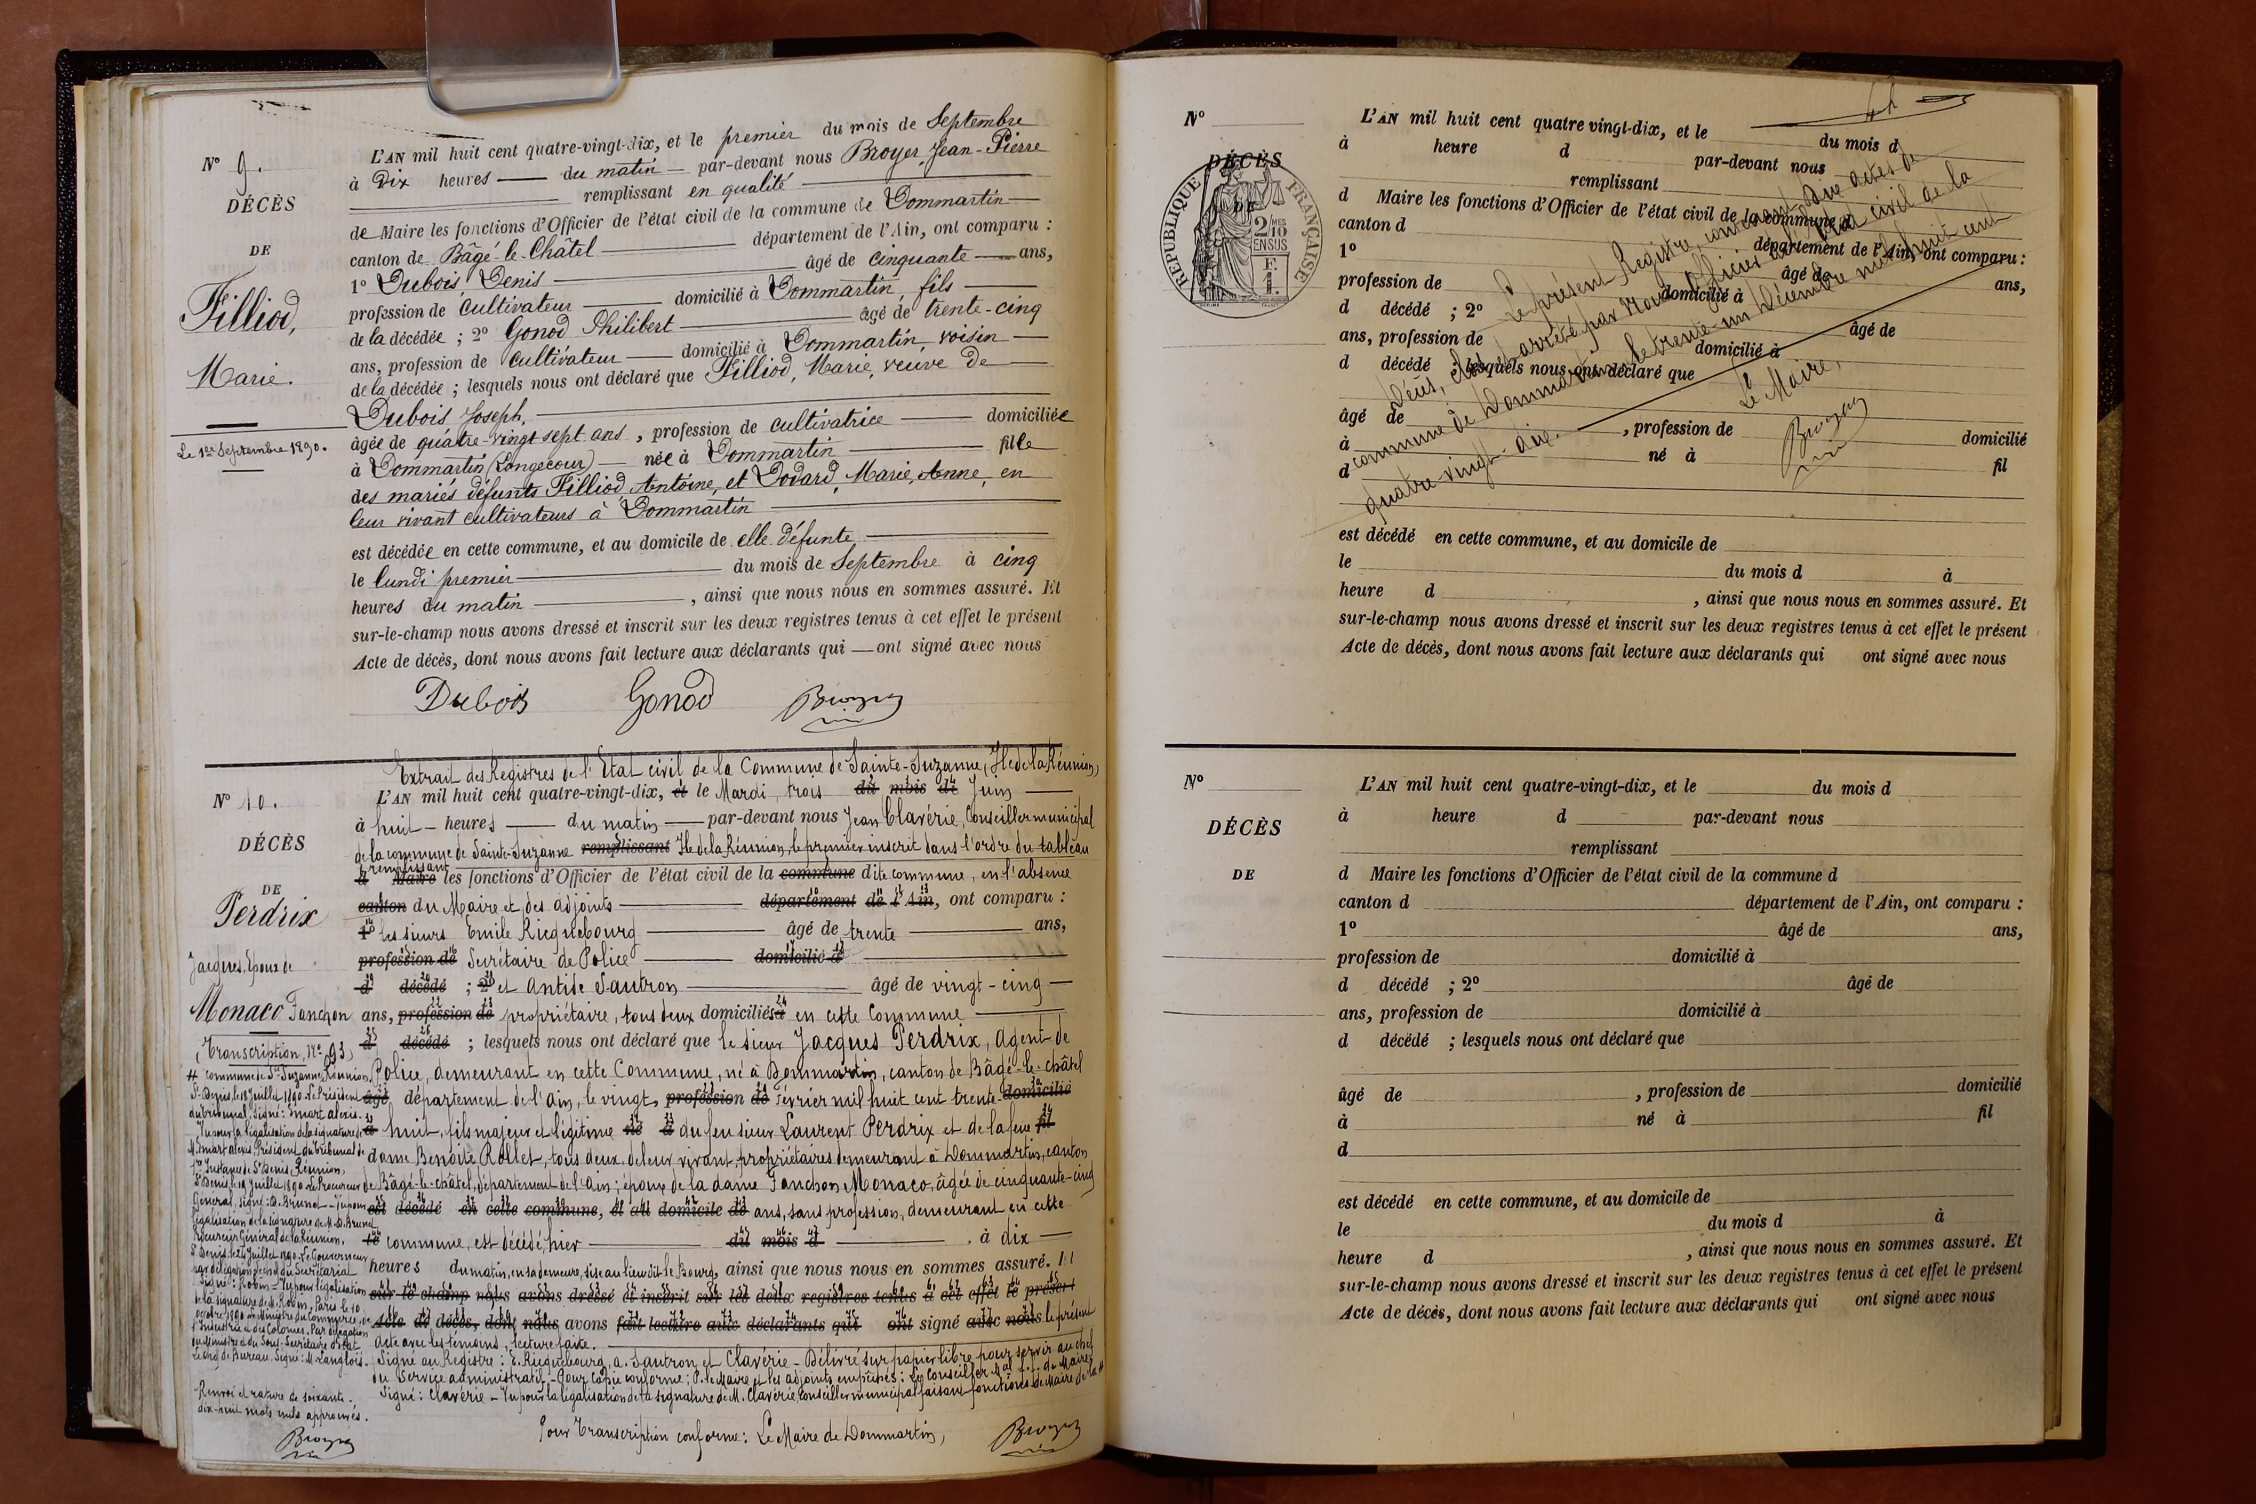 N° 9.
DÉCÈS
DE
Filliod,
Marie.
Le 1er Septembre 1890.
L'AN mil huit cent quatre-vingt-dix, et le premier du mois de Septembre
à Dix heures du matin par-devant nous Broyer, Jean-Pierre
remplissant en qualité
de Maire les fonctions d'Officier de l'état civil de la commune de Dommartin
canton de Bâgé-le-Châtel département de l'Ain, ont comparu :
1° Dubois Denis âgé de cinquante ans,
profession de cultivateur domicilié à Dommartin fils
de la décédée ; 2° Gonod Philibert âgé de trente-cinq
ans, profession de cultivateur domicilié à Dommartin voisin
de la décédée ; lesquels nous ont déclaré que Filliod, Marie, veuve de
Dubois Joseph,
âgée de quatre-vingt sept ans, profession de cultivatrice domiciliée
à Dommartin (Longecour) née à Dommartin fille
des mariés défunts Filliod Antoine, et Dodard, Marie, Anne, en
leur vivant cultivateurs à Dommartin
est décédée en cette commune, et au domicile de elle défunte
le lundi premier du mois de Septembre à cinq
heures du matin, ainsi que nous nous en sommes assuré. Et
sur-le-champ nous avons dressé et inscrit sur les deux registres tenus à cet effet le présent
Acte de décès, dont nous avons fait lecture aux déclarants qui ont signé avec nous
Dubois Gonod Broyer
Extrait des Registres de l'Etat civil de la Commune de Sainte-Suzanne (Ile de la Réunion)
N° 10.
DÉCÈS
DE
Perdrix
Jacques, Epoux de
Monaco Fanchon
(Transcription, N° 93)
L'AN mil huit cent quatre-vingt-dix, et le Mardi, trois du mois de Juin
à huit heures du matin par-devant nous Jean Clavérie, Conseiller municipal
de la commune de Sainte-Suzanne remplissant Ile de la Réunion, le premier inscrit dans l'ordre du tableau
remplissant
d Maire les fonctions d'Officier de l'état civil de la commune dite commune, en l'absence
canton du Maire et des adjoints département de l'Ain, ont comparu :
1° les sieurs Emile Ricquebourg âgé de trente ans,
profession de Secrétaire de Police domicilié à
d décédé ; 2° et Antise Sautron âgé de vingt-cinq
ans, profession de propriétaire, tous deux domiciliés à en cette Commune
d décédé ; lesquels nous ont déclaré que le sieur Jacques Perdrix, Agent de
Police, demeurant en cette Commune, né à Dommartin, canton de Bâgé-le-châtel
âgé département de l'ain, le vingt, profession de Février mil huit cent trente-domicilié
à huit, fils majeur et légitime né à du feu sieur Laurent Perdrix et de la feue fil
dame Benoite Rollet, tous deux, de leur vivant, propriétaires demeurant à Dommartin, canton
de Bâgé-le-châtel, département de l'ain ; époux de la dame Fanchon Monaco, âgée de cinquante-cinq
est décédé en cette commune, et au domicile de ans, sans profession, demeurant en cette
le commune, est décédé, hier du mois d à dix
heures du matin, en sa demeure, sise au lieu dit le Bourg, ainsi que nous nous en sommes assuré. Et
sur-le-champ nous avons dressé et inscrit sur les deux registres tenus à cet effet le présent
Acte de décès, dont nous avons fait lecture aux déclarants qui ont signé avec nous le présent
acte avec les témoins, lecture faite.
Signé au Registre : E. Ricquebourg, a. Sautron et Clavérie - Délivré sur papier libre pour servir au chef
du Service administratif - Pour Copie conforme : P. le Maire et les adjoints empêchés : Le Conseiller Mal f.f. de Maire,
Signé : Clavérie - Vu pour la légalisation de la signature de M. Clavérie, Conseiller municipal faisant fonctions de Maire de la #
# commune de Ste Suzanne Réunion.
St Denis, le 18 juillet 1890. Le Président
du tribunal, Signé :
Vu pour la légalisation de la signature de
Président du tribunal de
1re Instance de St Denis, Réunion,
St Denis, le 19 juillet 1890. Le Procureur
Général, Signé : D. Brunet - Vu pour
légalisation de la signature de M. D. Brunet
Procureur Général de la Réunion.
St Denis, le 24 juillet 1890. Le Gouverneur
Signé : Robin - Vu pour légalisation
de la signature de M. Robin, Paris, le 10
Le chef de Bureau, Signé : M. Langlois.
Renvoi et rature de soixante-
dix-huit mots nuls approuvés.
Broyer
Pour Transcription conforme : Le Maire de Dommartin,
Broyer
N°
DÉCÈS
RÉPUBLIQUE FRANÇAISE
2/10 EN SUS
L'AN mil huit cent quatre vingt-dix, et le du mois d
à heure d par-devant nous
remplissant
d Maire les fonctions d'Officier de l'état civil de la commune d
canton d département de l'Ain, ont comparu :
1° âgé de ans,
profession de domicilié à
d décédé ; 2° âgé de
ans, profession de domicilié à
d décédé ; lesquels nous ont déclaré que
âgé de , profession de domicilié
à né à fil
d
est décédé en cette commune, et au domicile de
le du mois d à
heure d , ainsi que nous nous en sommes assuré. Et
sur-le-champ nous avons dressé et inscrit sur les deux registres tenus à cet effet le présent
Acte de décès, dont nous avons fait lecture aux déclarants qui ont signé avec nous
Le présent Registre, contenant dix actes de
Décès, clos et arrêté par Nous Officier de l'état civil de la
commune de Dommartin, le trente-un Décembre mil huit cent
quatre vingt-dix.
Le Maire,
Broyer
N°
DÉCÈS
DE
L'AN mil huit cent quatre-vingt-dix, et le du mois d
à heure d par-devant nous
remplissant
d Maire les fonctions d'Officier de l'état civil de la commune d
canton d département de l'Ain, ont comparu :
1° âgé de ans,
profession de domicilié à
d décédé ; 2° âgé de
ans, profession de domicilié à
d décédé ; lesquels nous ont déclaré que
âgé de , profession de domicilié
à né à fil
d
est décédé en cette commune, et au domicile de
le du mois d à
heure d , ainsi que nous nous en sommes assuré. Et
sur-le-champ nous avons dressé et inscrit sur les deux registres tenus à cet effet le présent
Acte de décès, dont nous avons fait lecture aux déclarants qui ont signé avec nous